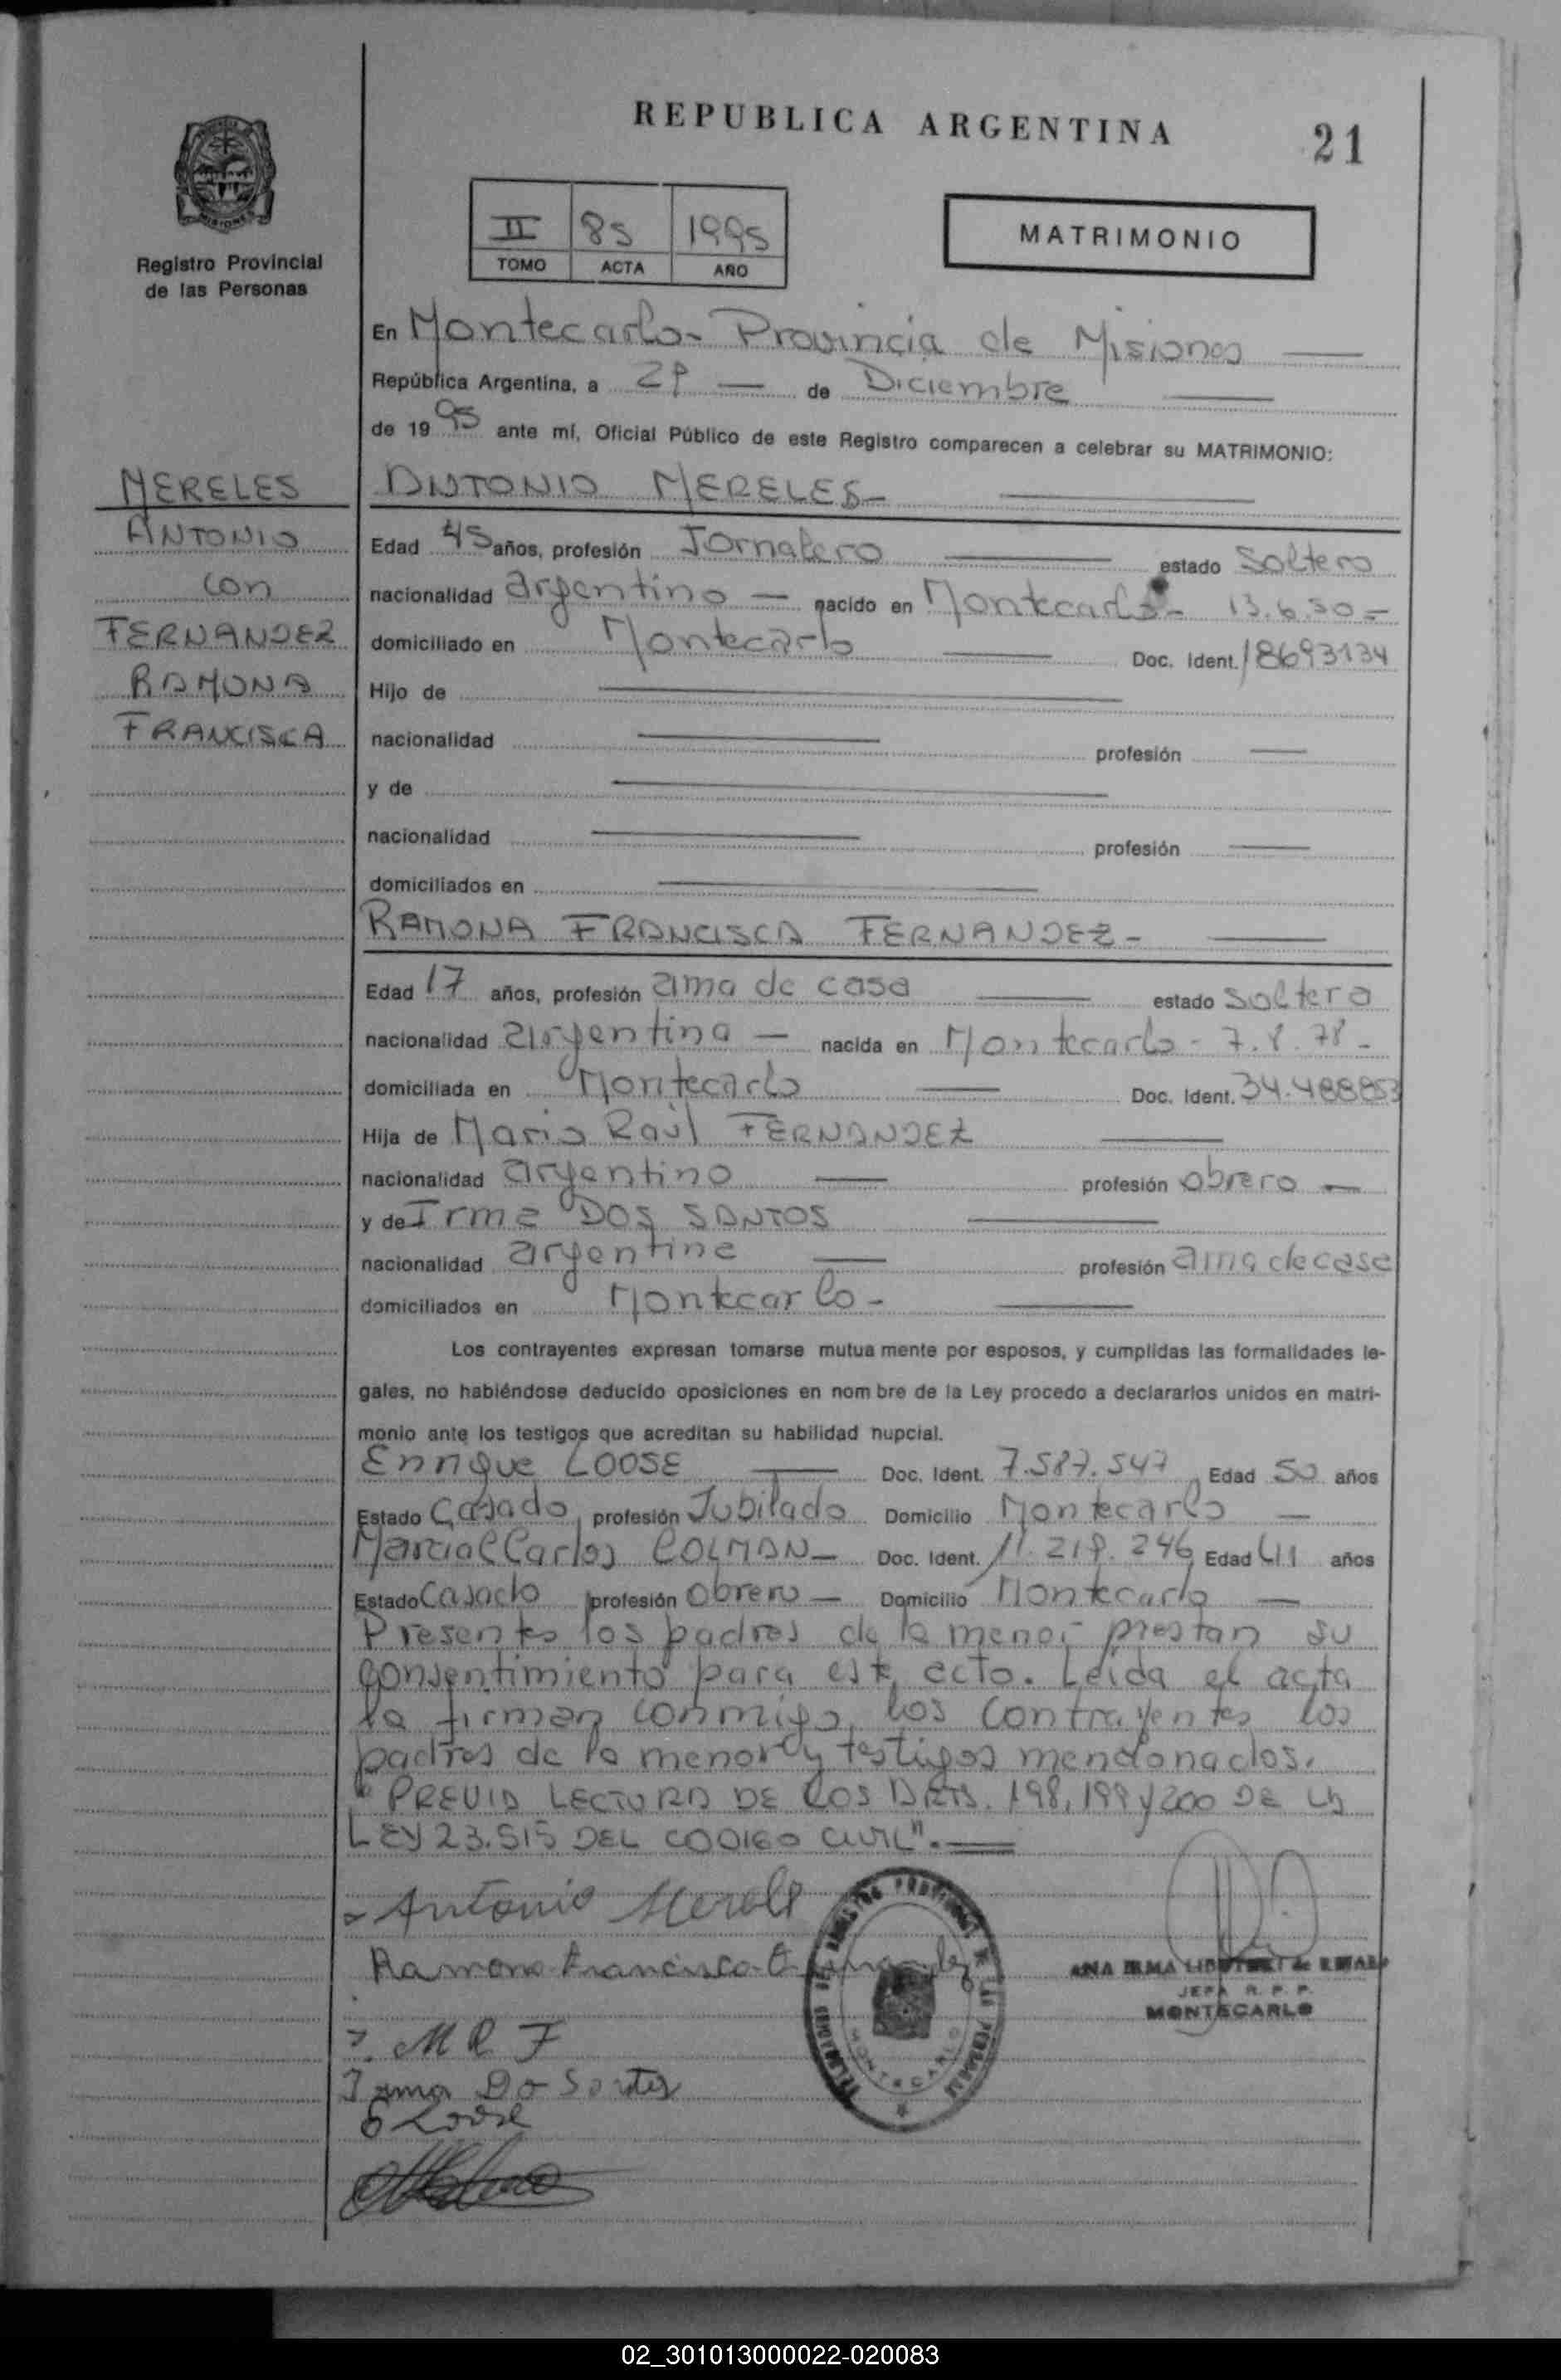 REPUBLICA ARGENTINA
21
MISIONES
Registro Provincial
de las Personas
II 85 1995
TOMO ACTA AÑO
MATRIMONIO
En Montecarlo- Provincia de Misiones
República Argentina, a 29 de Diciembre
de 1995 ante mí, Oficial Público de este Registro comparecen a celebrar su MATRIMONIO:
MERELES
ANTONIO
con
FERNANDEZ
RAMONA
FRANCISCA
ANTONIO MERELES-
Edad 45 años, profesión Jornalero estado Soltero
nacionalidad argentino — nacido en Montecarlo- 13.6.50-
domiciliado en Montecarlo Doc. Ident. 18693134
Hijo de
nacionalidad profesión
y de
nacionalidad profesión
domiciliados en
RAMONA FRANCISCA FERNANDEZ-
Edad 17 años, profesión ama de casa estado soltera
nacionalidad argentina — nacida en Montecarlo- 7.8.78-
domiciliada en Montecarlo Doc. Ident. 34.488853
Hija de Mario Raúl FERNANDEZ
nacionalidad argentino profesión obrero —
y de Irma DOS SANTOS
nacionalidad argentina profesión ama de casa
domiciliados en Montecarlo-
Los contrayentes expresan tomarse mutua mente por esposos, y cumplidas las formalidades le-
gales, no habiéndose deducido oposiciones en nom bre de la Ley procedo a declararlos unidos en matri-
monio ante los testigos que acreditan su habilidad nupcial.
Enrique LOOSE Doc. Ident. 7.587.547 Edad 50 años
Estado Casado profesión Jubilado Domicilio Montecarlo —
Marcial Carlos COLMAN— Doc. Ident. 11.219.246 Edad 41 años
Estado Casado profesión obrero — Domicilio Montecarlo —
Presentes los padres de la menor prestan su
consentimiento para este acto. Leída el acta
la firman conmigo, los contrayentes los
padres de la menor y testigos mencionados.
"PREVIA LECTURA DE LOS ARTS. 198, 199 y 200 DE LA
LEY 23.515 DEL CODIGO CIVIL".
Antonio Merele
Ramona Francisca Fernandez
M R F
Irma Do Santos
E Loose
ANA IRMA
JEFA R. P. P.
MONTECARLO
MONTECARLO
02_301013000022-020083